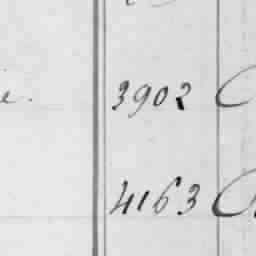 e. 3902
4163